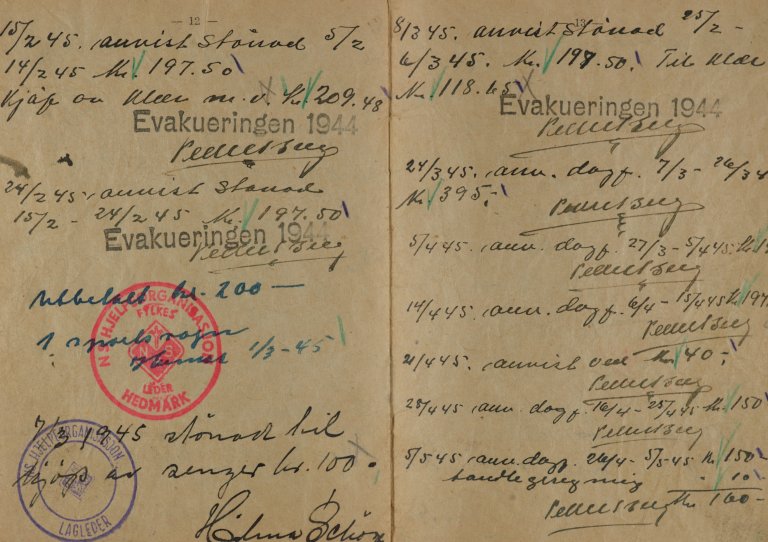 — 12 —
15/2 45. anvist Stönad 5/2
14/2 45 Kr. 197.50
Kjöp av klær m.v. Kr 209.48
Evakueringen 1944
24/2 45. anvist Stönad
15/2 - 24/2 45 Kr. 197.50
Evakueringen 1944
Utbetalt kr. 200 —
1 sportsvogn
1/3-45
N S HJELPEORGANISASJON
FYLKES
NS
LEDER
HEDMARK
7/3 1945 stönad til
kjøp av senger kr. 100.
NS HJELPEORGANISASJON
LAGLEDER
Hilma Schön
13 —
8/3 45. anvist Stönad 25/2 -
6/3 45. Kr. 197.50. Til klær
Kr 118.65
Evakueringen 1944
24/3 45. anv. dagp. 7/3 - 26/3 4
Kr 395.-
5/4 45. anv. dagp. 27/3 - 5/4 45 Kr
14/4 45. anv. dagp. 6/4 - 15/4 45 Kr
21/4 45. anvist ved Kr 40.-
28/4 45 anv. dagp. 16/4 - 25/4 45 Kr 150
5/5 45 anv. dagp. 26/4 - 5/5 45 Kr 150 -
10 -
Kr 160 -